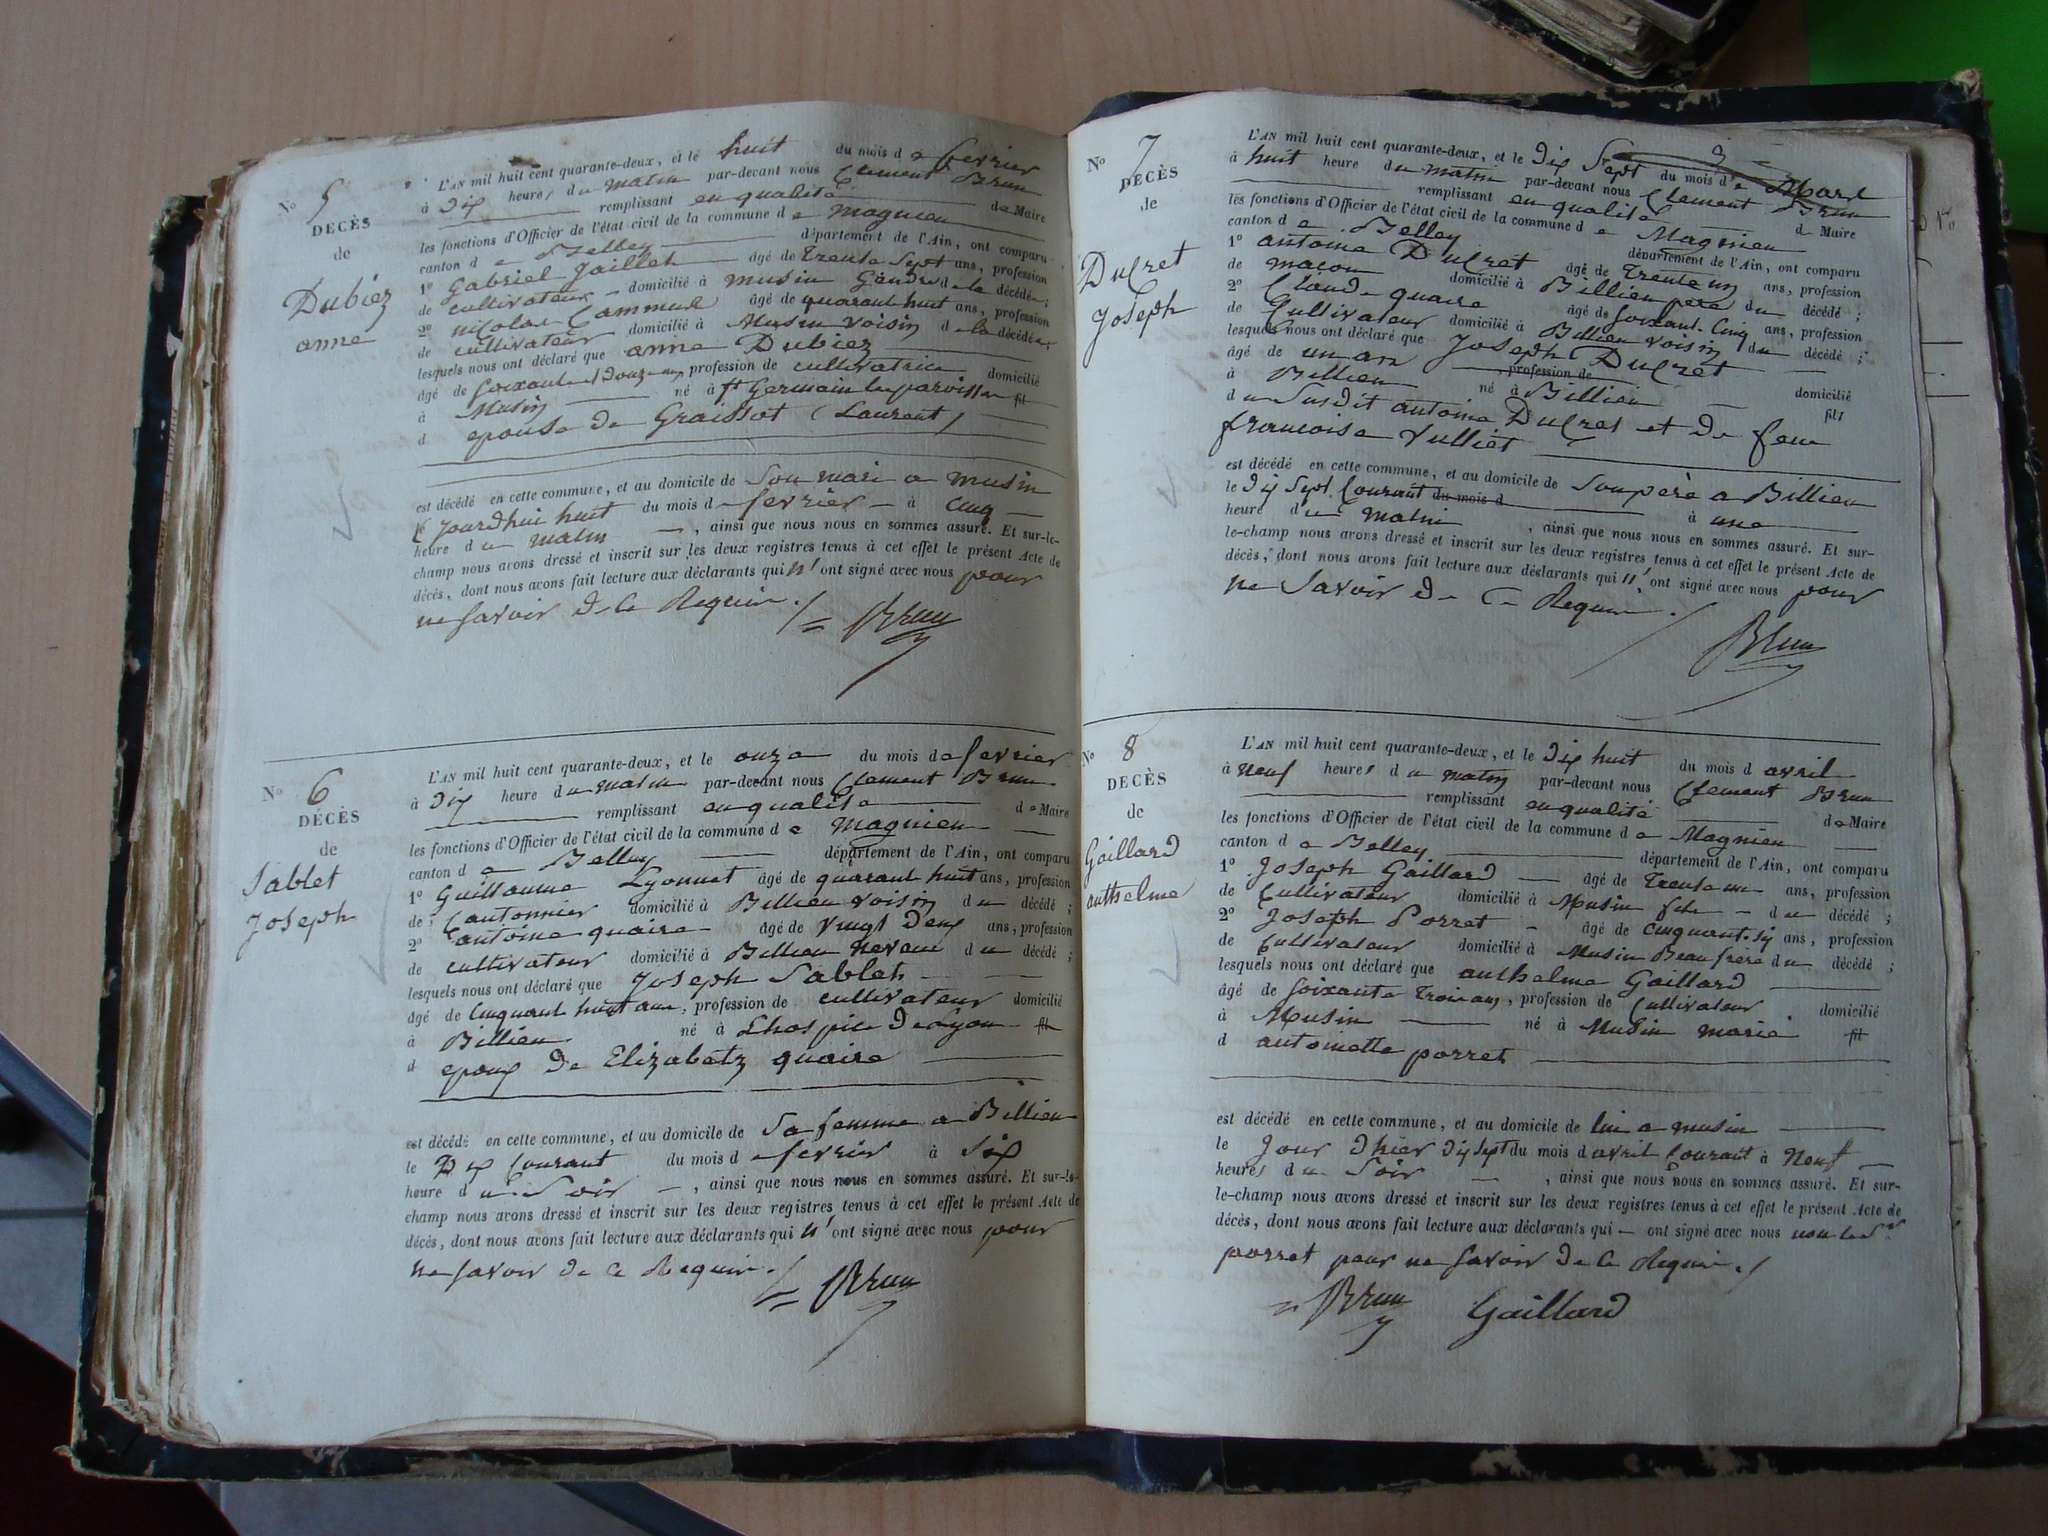 N° 5
DECÈS
de
Dubiez
anne
L'AN mil huit cent quarante-deux, et le huit du mois de fevrier
à Dix heures du matin par-devant nous Clement Brun
remplissant en qualité de Maire
les fonctions d'Officier de l'état civil de la commune de Magnieu
canton de Belley département de l'Ain, ont comparu
1° Gabriel Jaillet âgé de Trente Sept ans, profession
de cultivateur domicilié à musin Gendre de la décédée;
2° nicolas Cammuel âgé de quarant huit ans, profession
de cultivateur domicilié à Musin voisin de la décédée;
lesquels nous ont déclaré que anne Dubiez
âgé de Soixant et Douze ans profession de cultivatrice domicilié
à Musin né à St Germain les paroisses fil
d epouse de Graissot (Laurent)
est décédé en cette commune, et au domicile de Son mari a musin
le jourdhui huit du mois de fevrier à cinq
heure du matin, ainsi que nous nous en sommes assuré. Et sur-le-
champ nous avons dressé et inscrit sur les deux registres tenus à cet effet le présent Acte de
décès, dont nous avons fait lecture aux déclarants qui n' ont signé avec nous pour
ne savoir de ce Requis.
Brun
N° 6
DÉCÈS
de
Sablet
Joseph
L'AN mil huit cent quarante-deux, et le onze du mois de fevrier
à Dix heure du matin par-devant nous Clement Brun
remplissant en qualité de Maire
les fonctions d'Officier de l'état civil de la commune de Magnieu
canton de Belley département de l'Ain, ont comparu
1° Guillaume Lyonnet âgé de quarant huit ans, profession
de Cantonnier domicilié à Billieu voisin du décédé;
2° antoine quaire âgé de vingt deux ans, profession
de cultivateur domicilié à Billieu Neveu du décédé;
lesquels nous ont déclaré que Joseph Sablet
âgé de Cinquant huit ans, profession de cultivateur domicilié
à Billieu né à Lhospice De Lyon fil
d epoux de Elizabetz quaire
est décédé en cette commune, et au domicile de Sa femme a Billieu
le Dix Courant du mois de fevrier à Six
heure du Soir, ainsi que nous nous en sommes assuré. Et sur-le-
champ nous avons dressé et inscrit sur les deux registres tenus à cet effet le présent Acte de
décès, dont nous avons fait lecture aux déclarants qui n' ont signé avec nous pour
ne savoir de ce Requis.
Brun
N° 7
DÉCÈS
de
Ducret
Joseph
L'AN mil huit cent quarante-deux, et le Dix Sept du mois de Mars
à huit heure du matin par-devant nous Clement Brun
remplissant en qualité de Maire
les fonctions d'Officier de l'état civil de la commune de Magnieu
canton de Belley département de l'Ain, ont comparu
1° antoine Ducret âgé de Trente un ans, profession
de macon domicilié à Billieu père du décédé;
2° Claude quaire âgé de Soixant-Cinq ans, profession
de Cultivateur domicilié à Billieu voisin du décédé;
lesquels nous ont déclaré que Joseph Ducret
âgé de un an profession de domicilié
à Billieu né à Billieu fils
du Susdit antoine Ducret et De feue
francoise Vulliet
est décédé en cette commune, et au domicile de Son père a Billieu
le Dix Sept Courant du mois d à une
heure du Matin, ainsi que nous nous en sommes assuré. Et sur-
le-champ nous avons dressé et inscrit sur les deux registres tenus à cet effet le présent Acte de
décès, dont nous avons fait lecture aux déclarants qui n' ont signé avec nous pour
ne Savoir de Ce Requis.
Brun
N° 8
DECÈS
de
Gaillard
anthelme
L'AN mil huit cent quarante-deux, et le Dix huit du mois d avril
à Neuf heures du matin par-devant nous Clement Brun
remplissant en qualité de Maire
les fonctions d'Officier de l'état civil de la commune de Magnieu
canton de Belley département de l'Ain, ont comparu
1° Joseph Gaillard âgé de Trente un ans, profession
de Cultivateur domicilié à Musin fils du décédé;
2° Joseph Porret âgé de cinquant-six ans, profession
de Cultivateur domicilié à Musin Beaufrere du décédé;
lesquels nous ont déclaré que anthelme Gaillard
âgé de Soixante Trois ans, profession de Cultivateur domicilié
à Musin né à Musin marie fil
d antoinette porret
est décédé en cette commune, et au domicile de lui a musin
le Jour Dhier Dix Sept du mois d avril Courant à Neuf
heures du Soir, ainsi que nous nous en sommes assuré. Et sur-
le-champ nous avons dressé et inscrit sur les deux registres tenus à cet effet le présent Acte de
décès, dont nous avons fait lecture aux déclarants qui ont signé avec nous non led.
porret pour ne Savoir de ce Requis.
Brun Gaillard